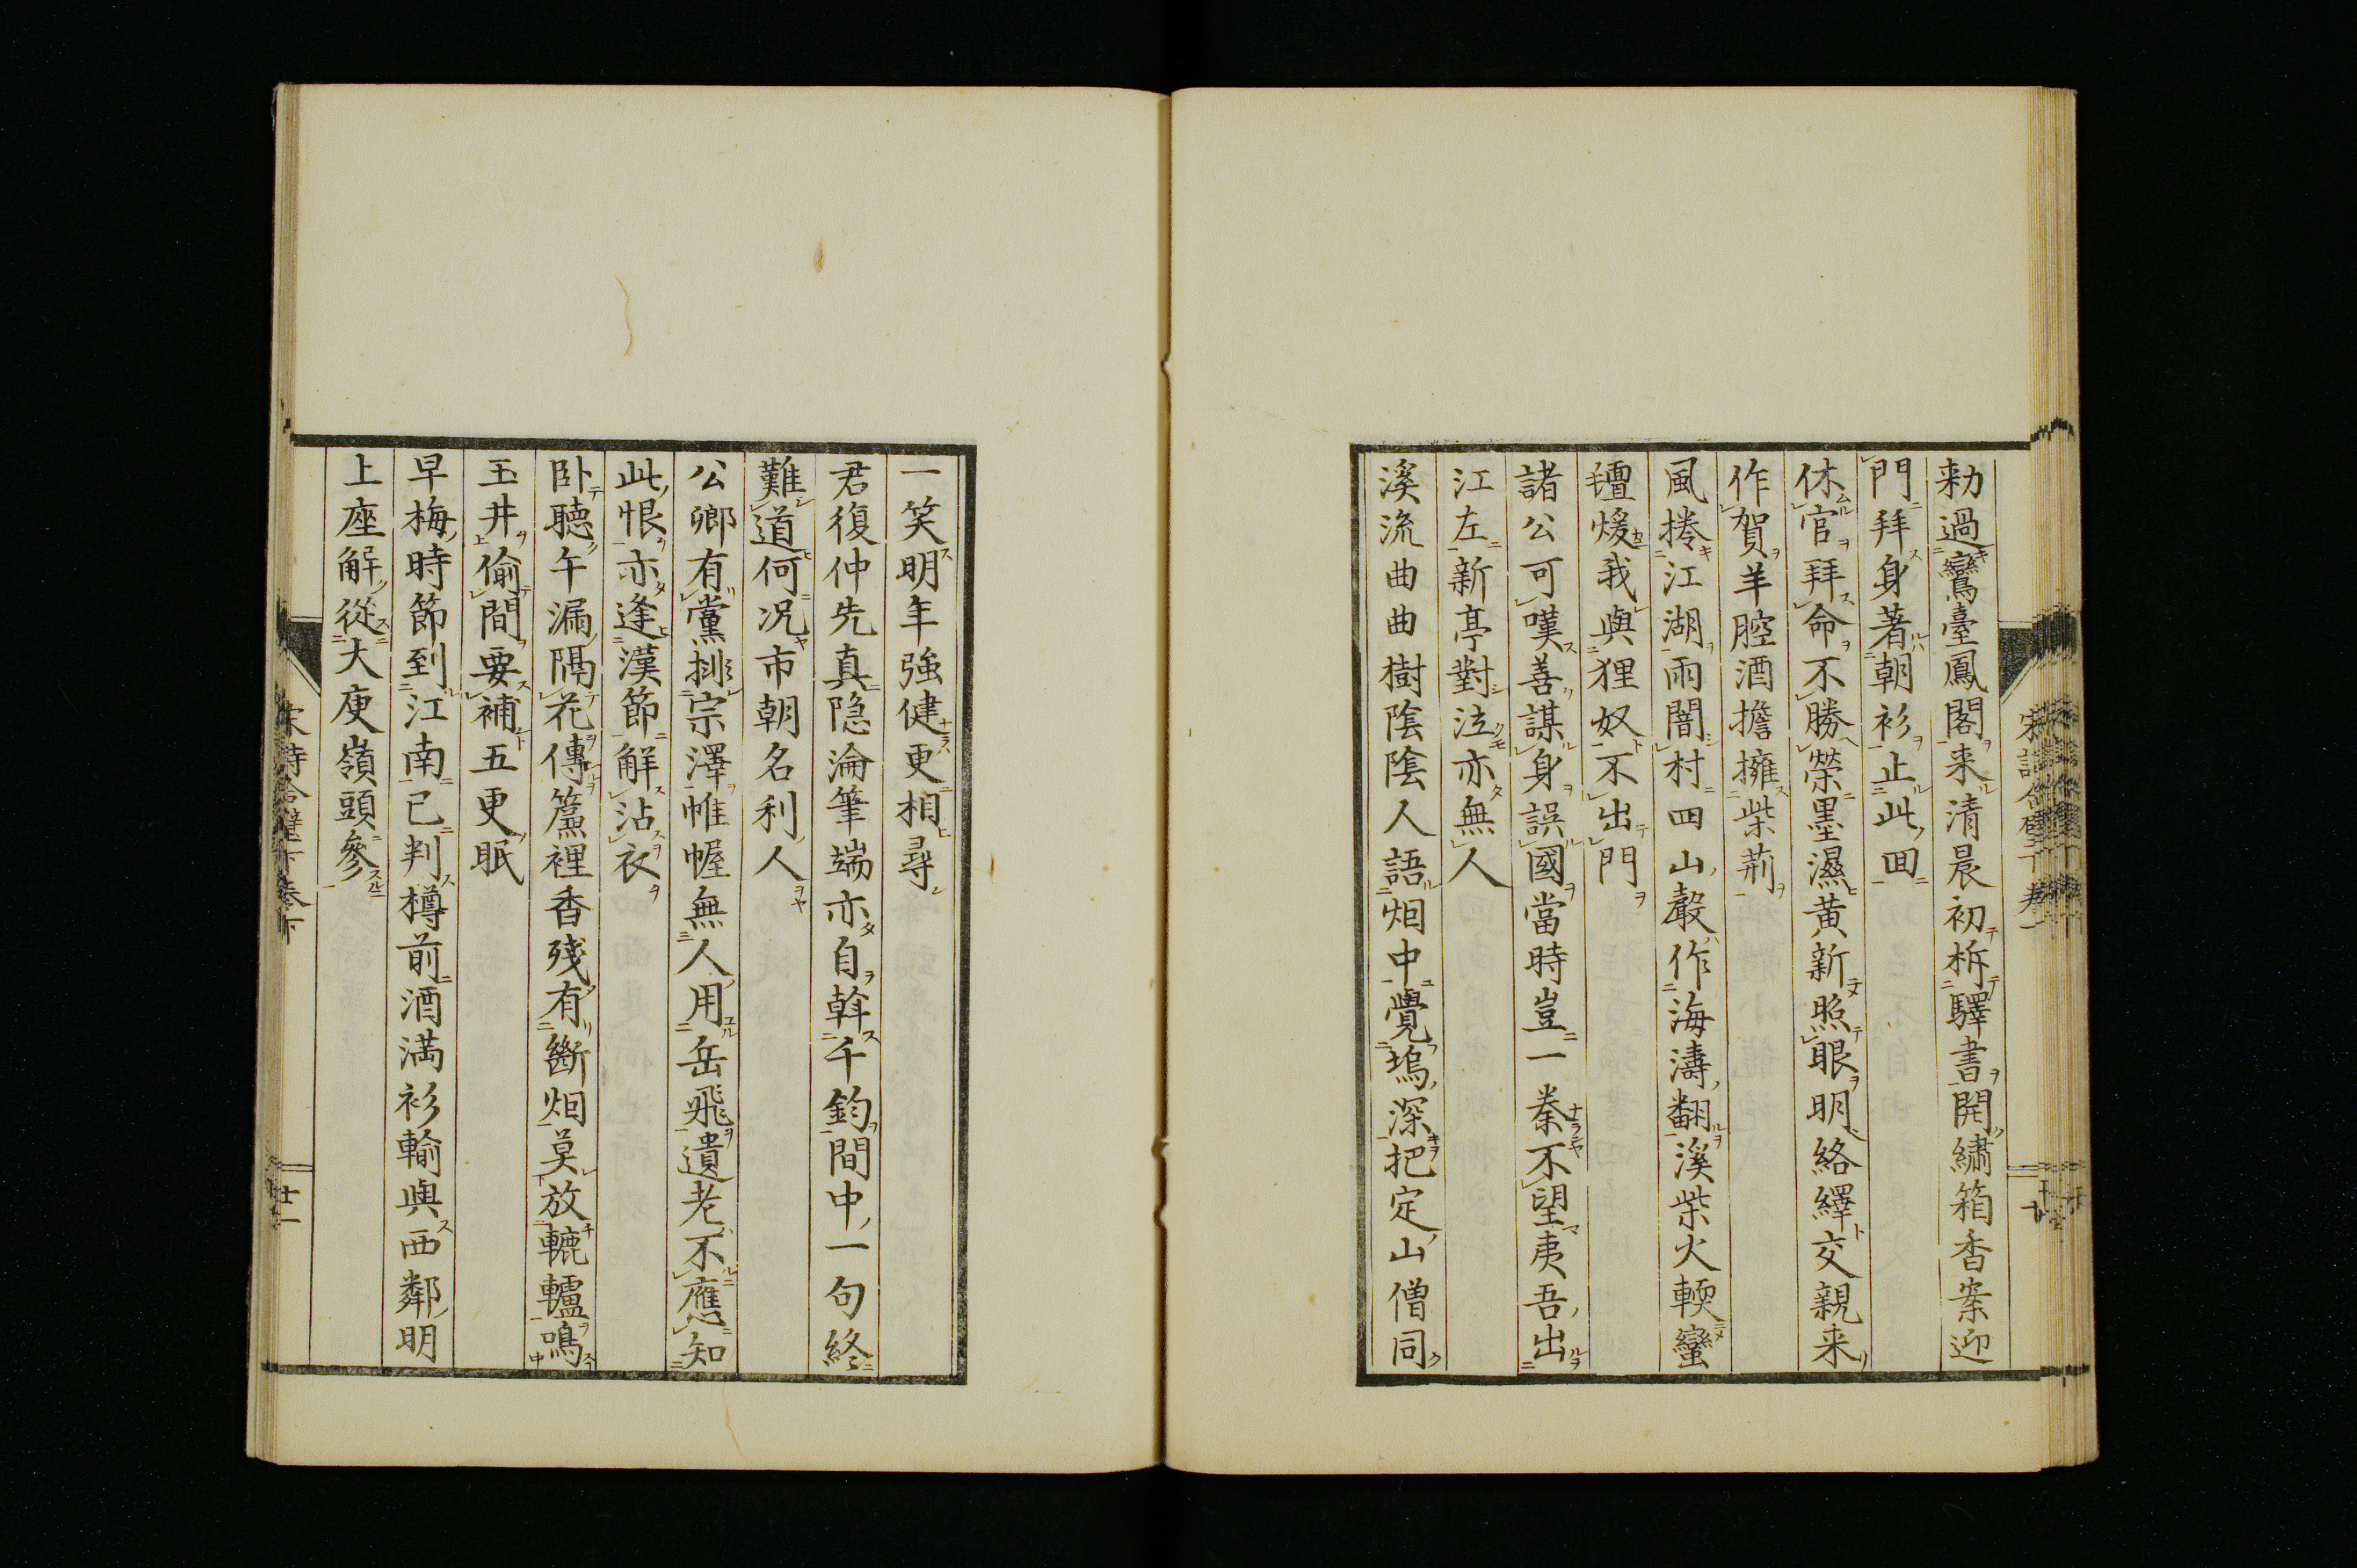 勑過鸞臺鳳閣来清晨初柝驛書開繡箱香案迎
門拜身著朝衫止此回
休官拜命不勝榮墨濕黄新照眼明絡繹交親来
作賀羊腔酒擔擁柴荊
風捲江湖雨闇村四山聲作海濤翻溪柴火輭蠻
氊煖我與狸奴不出門
諸公可嘆善謀身誤國當時豈一秦不望夷吾出
江左新亭對泣亦無人
溪流曲曲樹陰陰人語烟中覺塢深把定山僧同
一笑明年強健更相尋
君復仲先真隐淪筆端亦自斡千鈞間中一句終
難道何况市朝名利人
公卿有黨排宗澤帷幄無人用岳飛遺老不應知
此恨亦逢漢節解沾衣
卧聴午漏隔花傳篆裡香残有斷烟莫放轆轤鳴
玉井偷間要補五更眠
早梅時節到江南已判樽前酒満衫輸與西鄰明
上座解從大庾嶺頭參